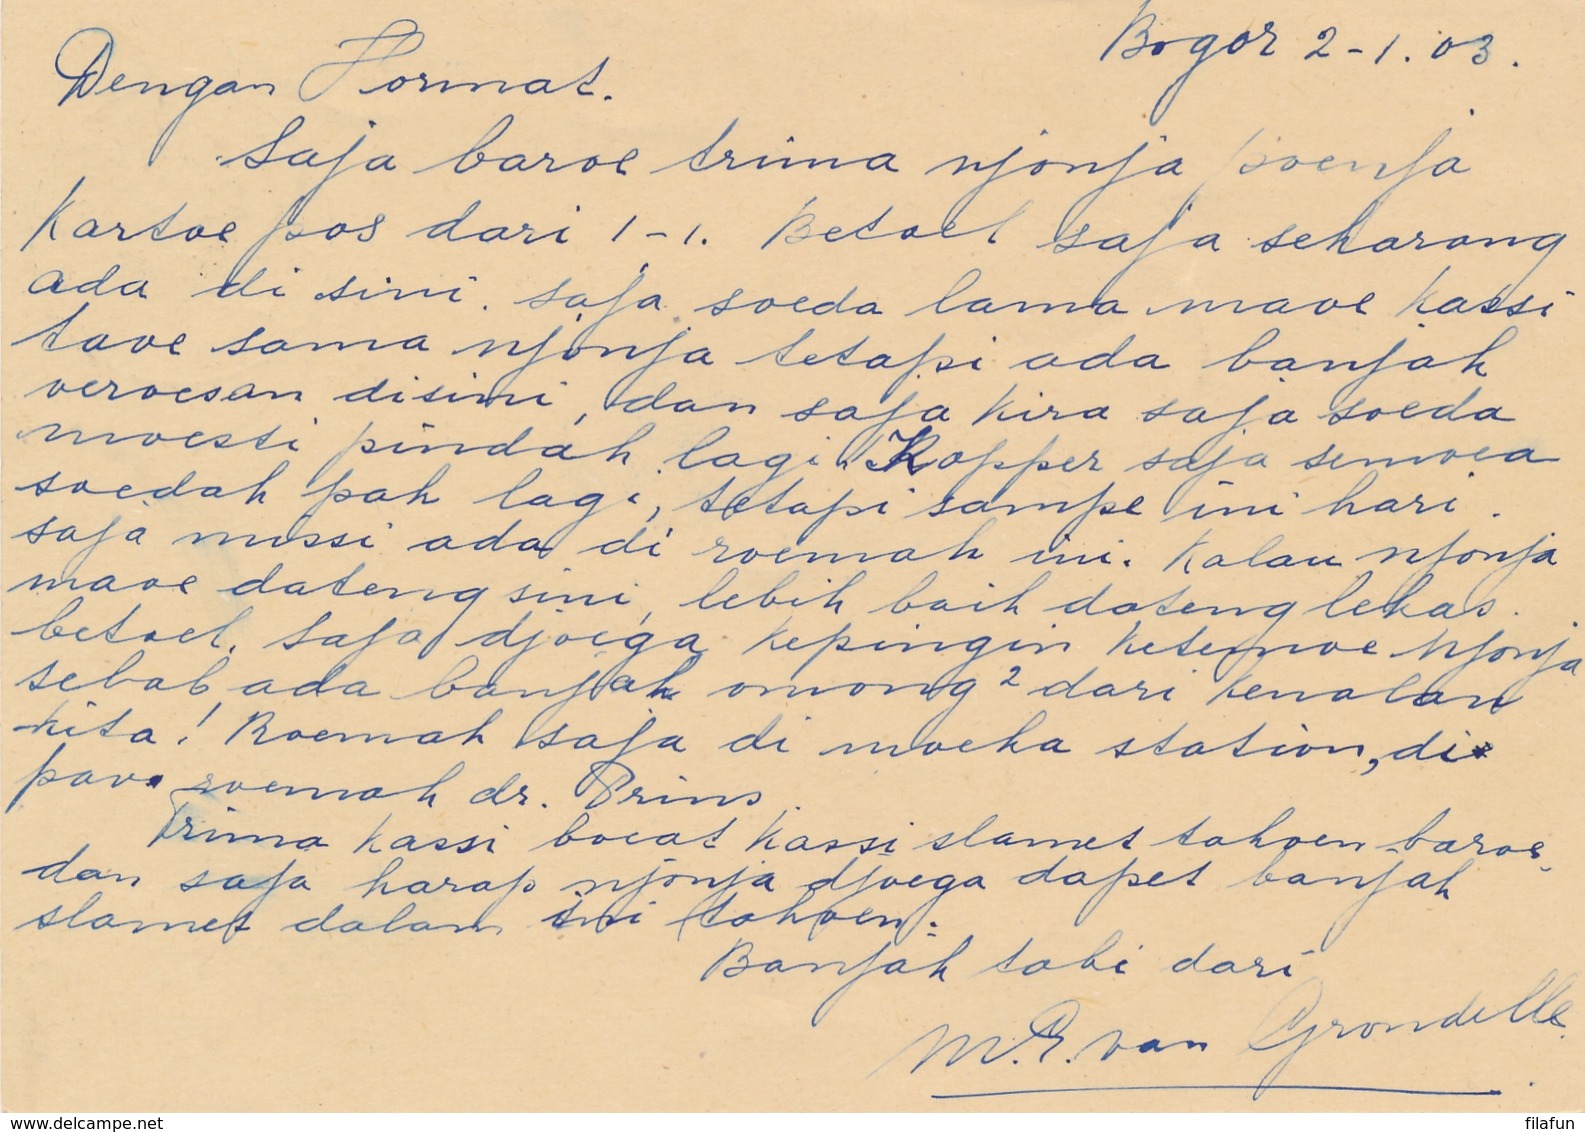 Bogor 2-1.03.
Dengan Hormat.
Saja baroe trima njonja poenja
Kartoe pos dari 1-1. Betoel saja sekarang
ada di sini. saja soeda lama maoe kassi
taoe sama njonja tetapi ada banjak
oeroesan disini, dan saja kira saja soeda
moesti pindah lagi. Kopper saja semoea
soedah pak lagi, tetapi sampe ini hari.
saja missi ada di roemah ini. Kalau njonja
maoe dateng sini, lebih baik dateng lekas.
betoel. saja djoega kepingin ketemoe njonja
sebab ada banjak omong² dari kenalan
kita! Roemah saja di moeka station, di
pav. roemah dr. Prins.
Trima kassi boeat kassi slamet tahoen baroe.
dan saja harap njonja djoega dapet banjak
slamet dalam ini tahoen.
Banjak tabi dari
M.E. van Grondelle.
www.delcampe.net
filafun